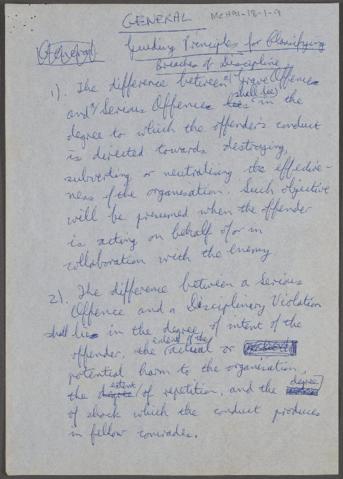 GENERAL MCH91-18-1-9
General Guiding Principles for Classifying
Breaches of Discipline
1). The difference between "Grave Offences
and" Serious Offences lies shall lie) in the
degree to which the offender's conduct
is directed towards destroying,
subverting or neutralising the effective-
ness of the organisation. Such objective
will be presumed when the offender
is acting on behalf of or in
collaboration with the enemy
2). The difference between a Serious
Offence and a Disciplinary Violation
shall lie in the degree of intent of the
offender, the extent of the actual or
potential harm to the organisation,
the degree extent of repetition, and the degree
of shock which the conduct produces
in fellow comrades.